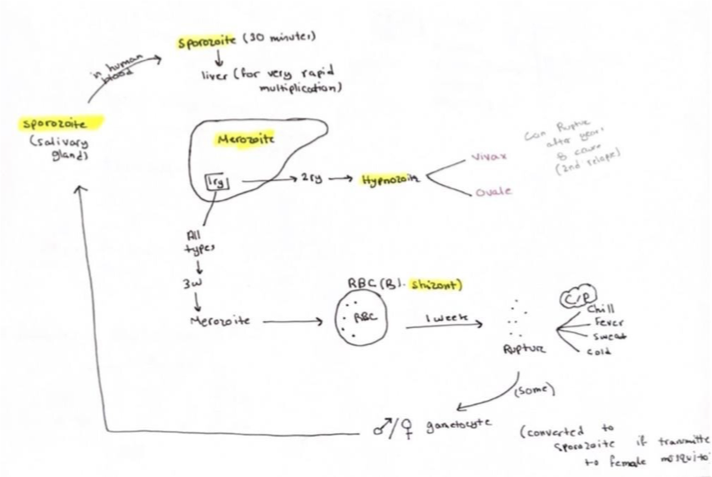 Sporozoite (30 minutes)
in human
blood
liver (for very rapid
multiplication)
Sporozoite
(salivary
gland)
Merozoite
1ry
2ry
Hypnozoite
Vivax
Ovale
Can Rupture
after years
& cause
(2nd relapse)
All
types
3w
Merozoite
RBC (Bl. shizont)
RBC
1 week
Rupture
C/P
Chill
Fever
Sweat
Cold
(Some)
♂/♀ gametocyte
(converted to
Sporozoite if transmitte
to female mosquito